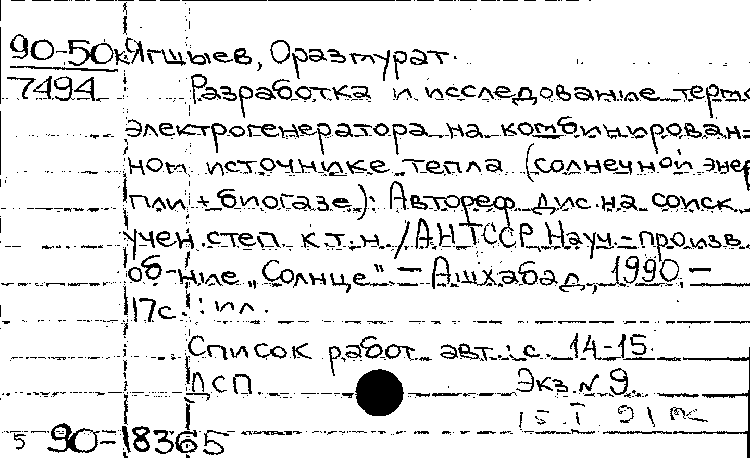 90-50к Ягшыев, Оразмурат.
7494 Разработка и исследование термо
электрогенератора на комбинирован-
ном источнике тепла (солнечной энер
гии + биогазе): Автореф. дис. на соиск.
учен. степ. к.т.н. / АН ТССР Науч.-произв.
об-ние „Солнце“ - Ашхабад, 1990. -
17с. : ил.
Список работ авт.: с. 14-15.
ДСП Экз. N 9.
15. I 91
5 90-18365